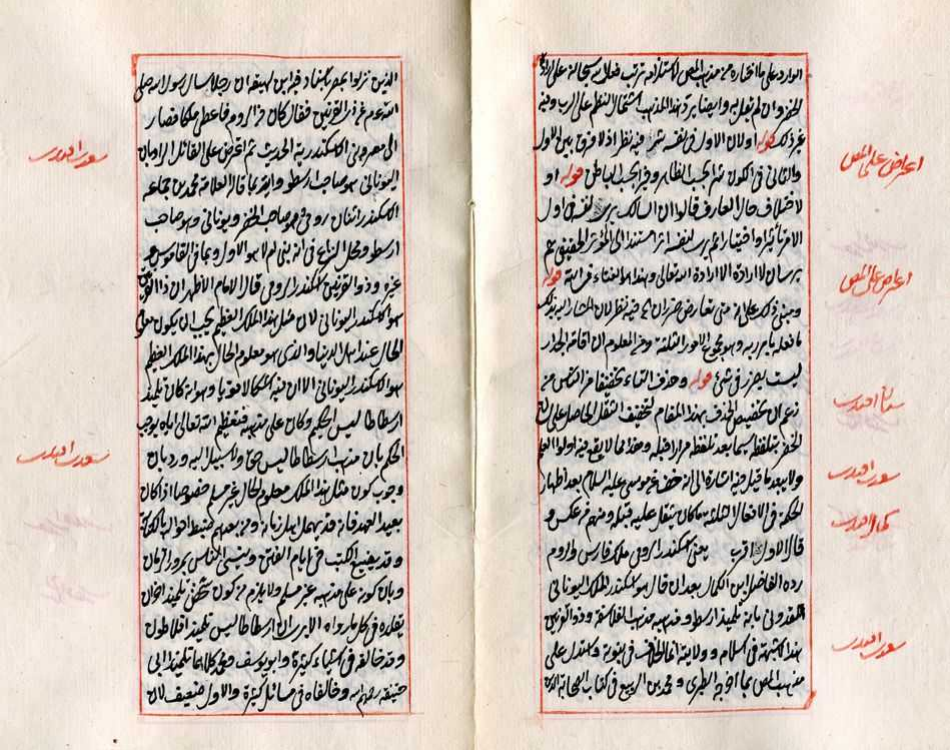 الوارد على ما اختاره من مذهب المص لاستلزامه ترتب فعله سبحانه على ارادة
الخضر وان لم نقل به وايضا يرد هذا المذهب اشتمال النظم على الرب وبه
غير ذلك قوله او لان الاول في نفسه شر فيه نظر اذ لا فرق بين الاول
والثاني في الكون شرا بحسب الظاهر وخيرا بحسب الباطن قوله او
لاختلاف حال العارف قالوا ان السالك يرى لنفسه في اول
الامر تأثيرا واختيارا ثم يرى نفسه اثرا مستندا الى المؤثر الحقيقي ثم
يرى ان لا ارادة الا ارادة الله تعالى وهذا هو الفناء في الله قوله
ومبنى ذلك على انه متى تعارض ضرران فيه نظر لان المشار اليه بذلك
ما فعله بامر ربه وهو مجموع الامور الثلثة ومن المعلوم ان اقامة الجدار
ليست بضرر في شئ قوله وحذف التاء تخفيفا من الناس من
زعم ان تخصيص الحذف بهذا المقام لتخفيف الثقل الحاصل على
الخضر بتلفظه بها بعد تلفظه مرارا قبله وهذا مما لا يتفوه به اولوا العلم
ولا يبعد ما قيل فيه اشارة الى انه خف عن موسى عليه السلام بعد اظهار
الحكمة في الافعال الثلثة ما كان يثقل عليه قبل ومنهم من عكس و
قال الاول اقرب يعني اسكندر الرومي ملك فارس والروم
رده الفاضل ابن الكمال بعد ان قال هو اسكندر الملك اليوناني
المقدوني بانه تلميذ ارسطو ومذهبه مذهب الفلاسفة وذو القرنين
هذا لا شبهة في اسلامه وولايته انما الخلاف في نبوته واستدل على
مذهب المص بما اخرجه الطبري ومحمد بن الربيع في كتاب الصحابة
اعتراض على المص
اعتراض على المص
سنان افندى
سعدى افندى
كمال افندى
سعدى افندى
الذين نزلوا بمصر باسناد فيه ابن لهيعة ان رجلا سال رسول الله صلى
الله عم عن ذي القرنين فقال كان من الروم فاعطى ملكا فصار
الى مصر وبنى الاسكندرية الحديث ثم اعترض على القائل الرومان
اليوناني هو صاحب ارسطو وايد بما قال العلامة محمد بن جماعة
الاسكندر اثنان رومي وهو صاحب الخضر ويوناني وهو صاحب
ارسطو ومحل النزاع في انه نبي ام لا هو الاول وبما في القاموس
غيره وذو القرنين اسكندر الرومي قال الامام الاظهر ان ذا القرنين
هو اسكندر اليوناني لان مثل هذا الملك العظيم يجب ان يكون معلوم
الحال عند اهل الدنيا والذي هو معلوم الحال بهذا الملك العظيم
هو الاسكندر اليوناني الا ان فيه اشكالا قويا وهو انه كان تلميذ
ارسطاطاليس الحكيم وكان على مذهبه فتعظيم الله تعالى اياه يوجب
الحكم بان مذهب ارسطاطاليس حق ولا سبيل اليه ورد بان
وجوب كون مثل هذا الملك معلوم الحال غير مسلم خصوصا اذا كان
بعيد العهد فانه قد يهمل اهل زمانه ومن بعدهم ضبط احواله بالكلية
وقد يضيع الكتب في ايام الفتن وينسى الناس بمرور الزمان
وبان كونه على مذهبه غير مسلم ولا يلزم من كون شخص تلميذ اخر ان
يقلده في كل ما يراه الا يرى ان ارسطاطاليس تلميذ افلاطون
وقد خالفه في اشياء كثيرة وابو يوسف ومحمد كلاهما تلميذا ابي
حنيفة رحمهم الله وخالفاه في مسائل كثيرة والاول ضعيف لان
سعدى افندى
سعدى افندى